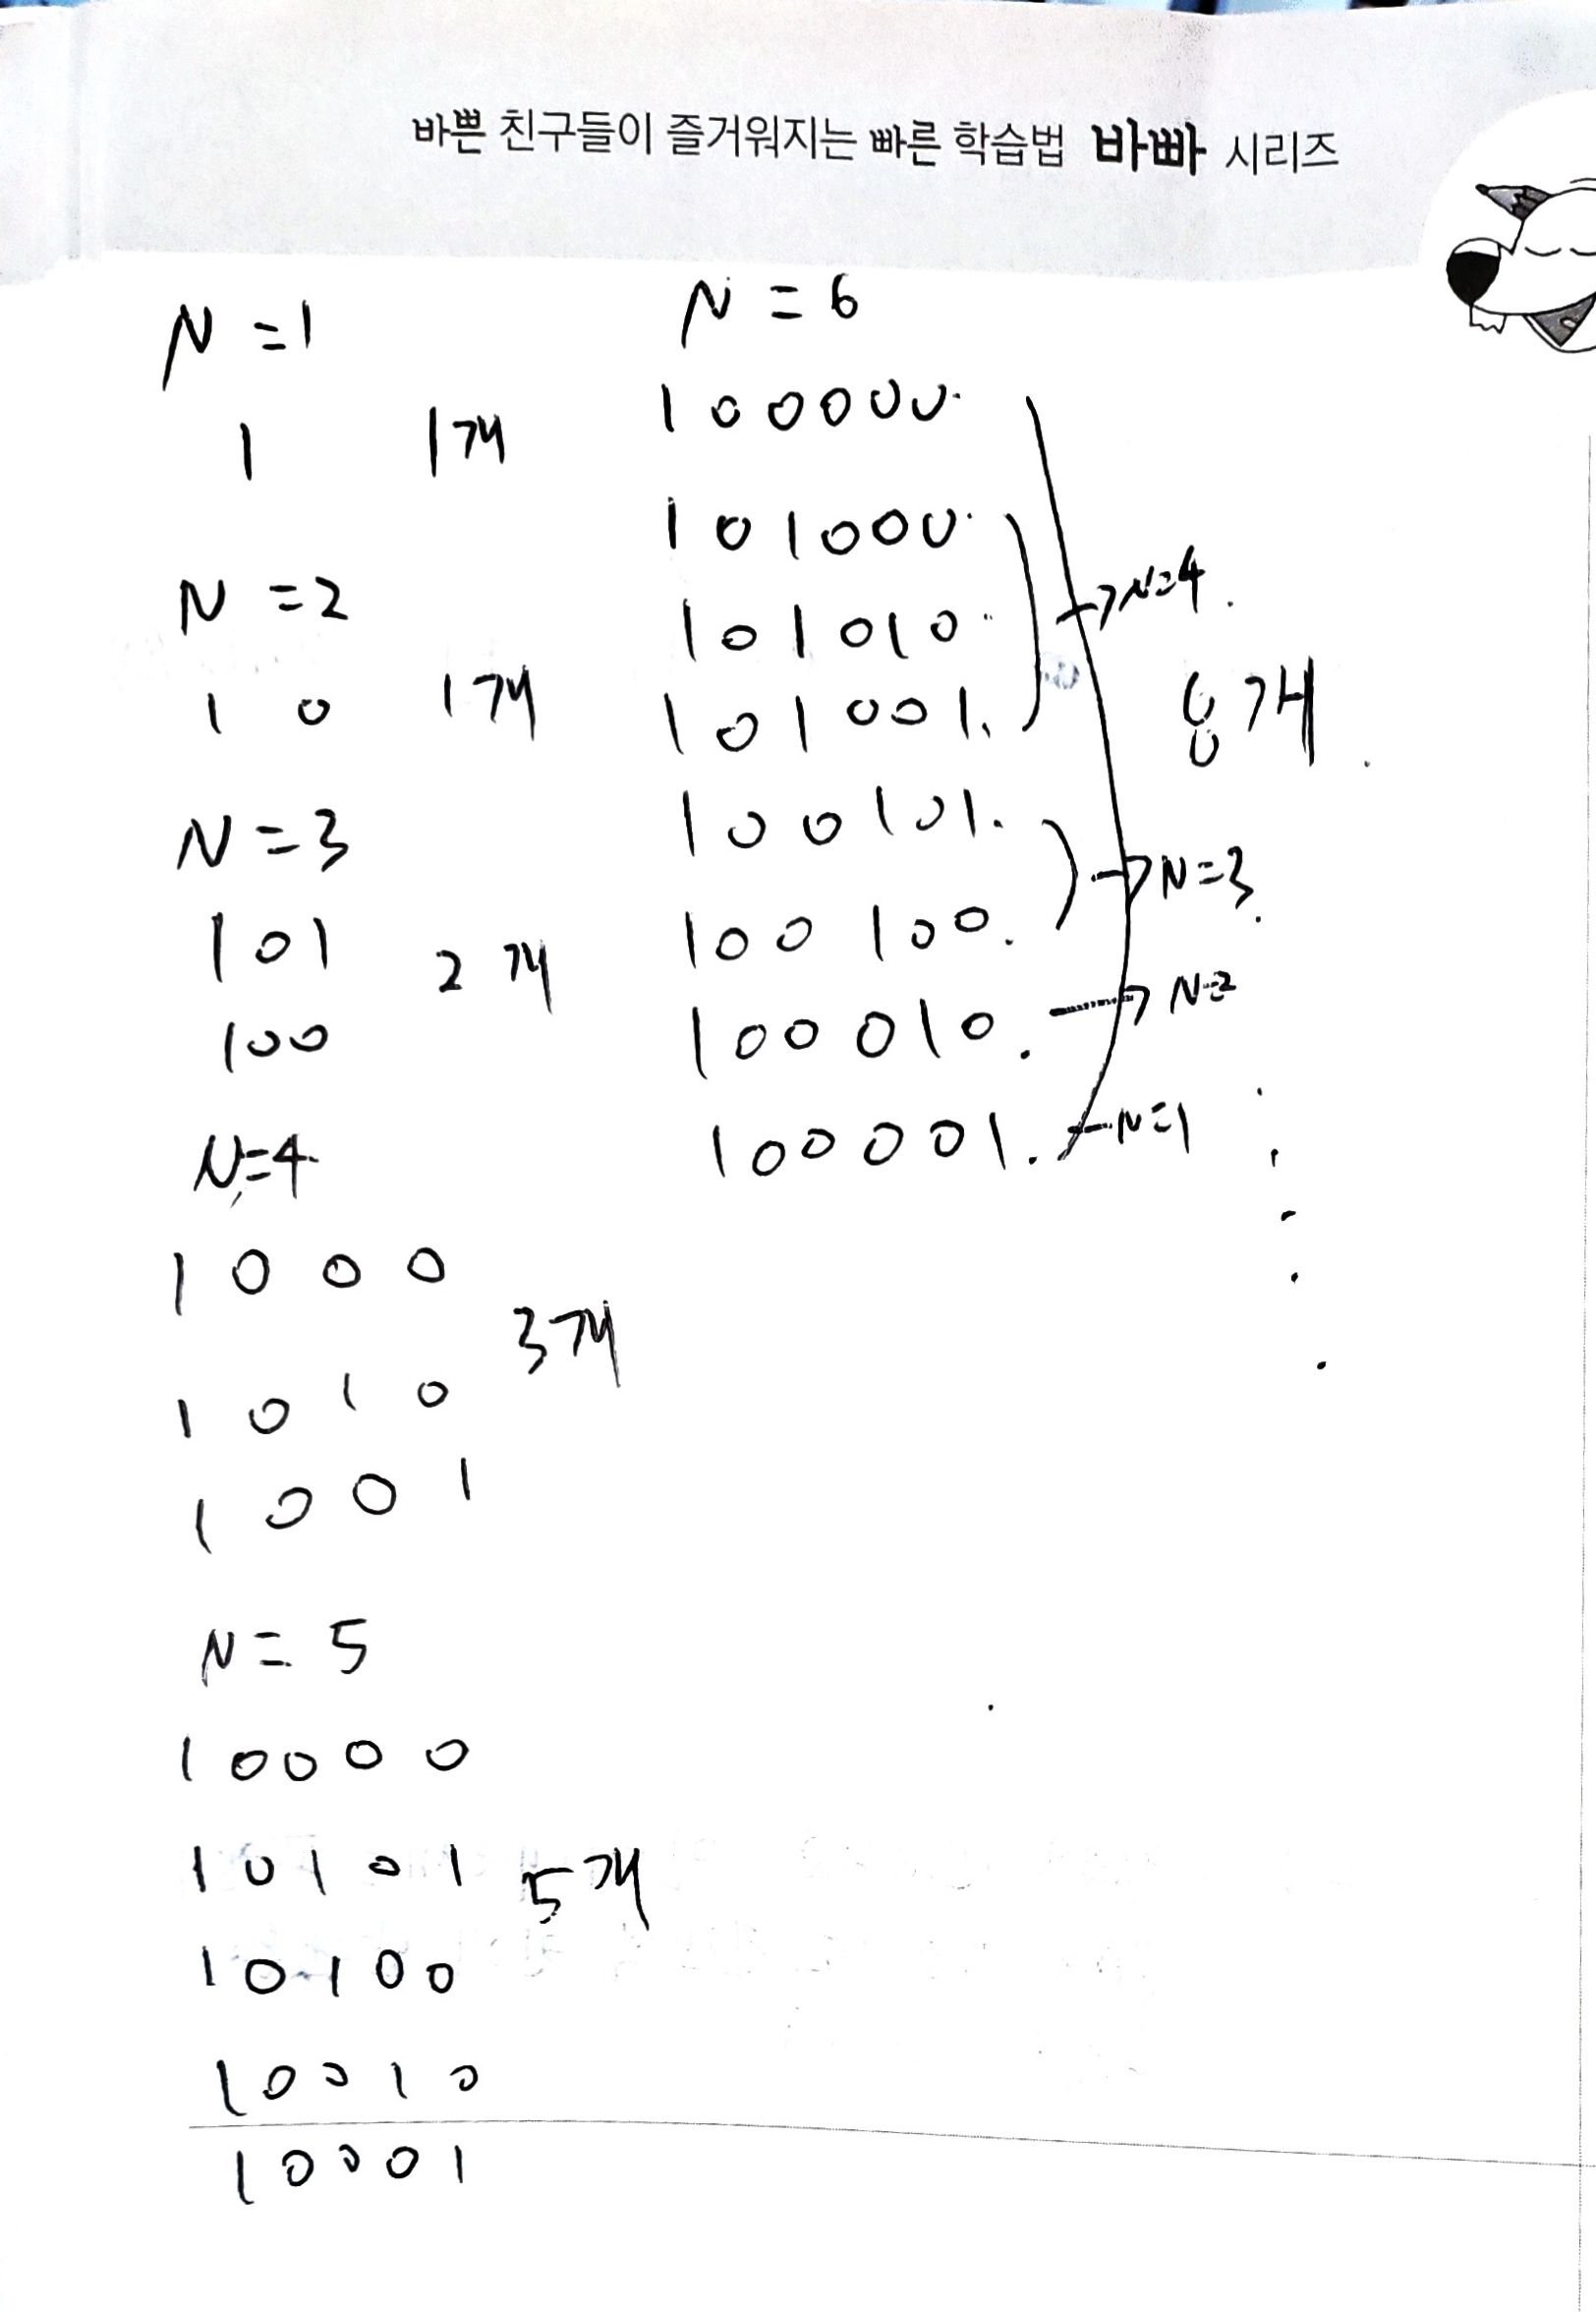 바쁜 친구들이 즐거워지는 빠른 학습법 바빠 시리즈
N=1
1 1개
N=2
1 0 1개
N=3
101
2개
100
N=4
1 0 0 0
3개
1 0 1 0
1 0 0 1
N= 5
1 0 0 0 0
1 0 1 0 1
5개
1 0 1 0 0
1 0 0 1 0
1 0 0 0 1
N = 6
1 0 0 0 0 0.
1 0 1 0 0 0.
1 0 1 0 1 0. →N=4.
1 0 1 0 0 1. 8개.
1 0 0 1 0 1.
→N=3.
1 0 0 1 0 0.
1 0 0 0 1 0. → N=2
1 0 0 0 0 1. N=1